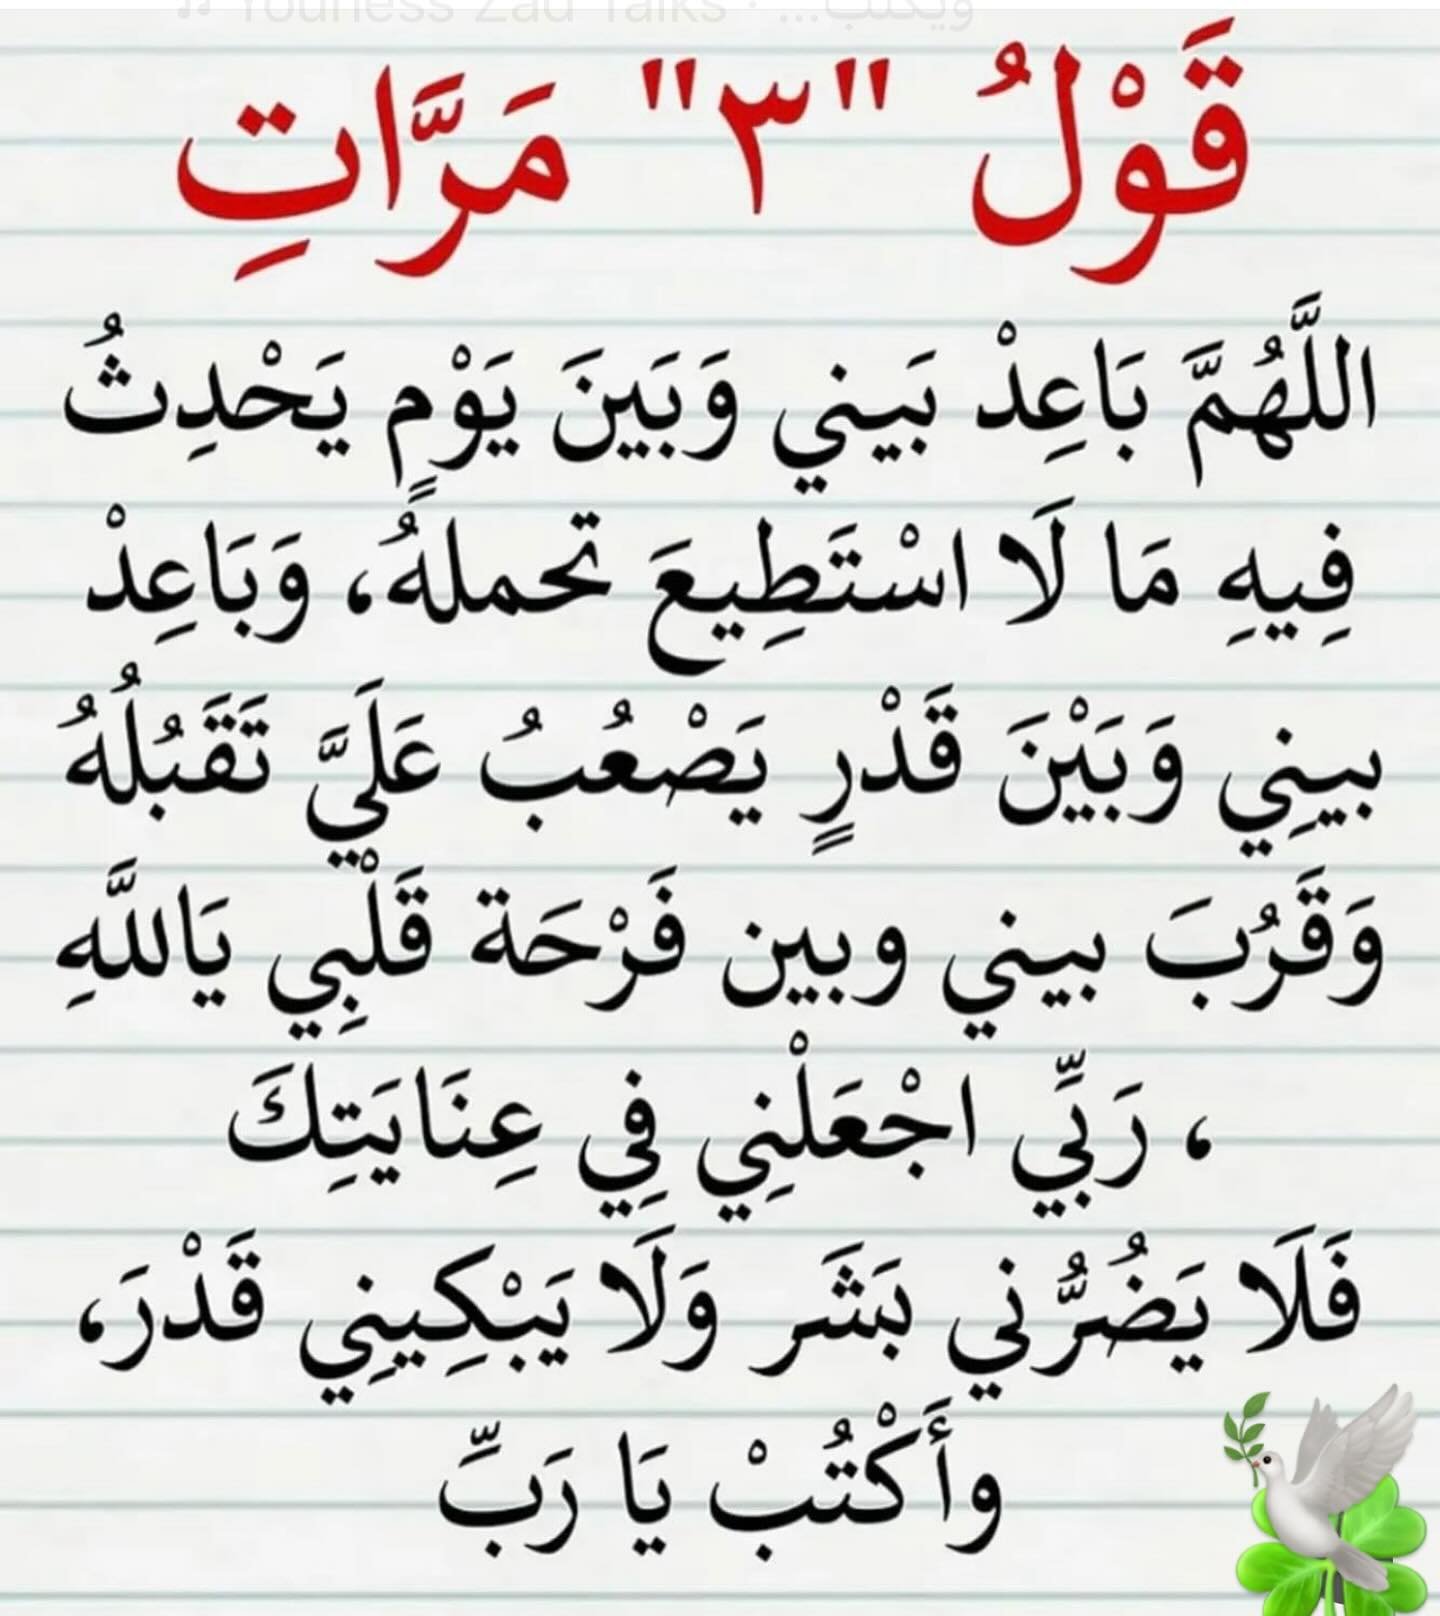 Youness Zad Talks · ...ويكتب
قَوْلُ "٣" مَرَّاتِ
اللَّهُمَّ بَاعِدْ بَيني وَبَينَ يَوْمٍ يَحْدِثُ
فِيهِ مَا لَا اسْتَطِيعَ تحملهُ، وَبَاعِدْ
بينِي وَبَيْنَ قَدْرٍ يَصْعُبُ عَلَيَّ تَقَبُلُهُ
وَقَرُبَ بيني وبين فَرْحَة قَلْبِي يَاللَّهِ
، رَبِّي اجْعَلْنِي فِي عِنَايَتِكَ
فَلَا يَضُرُّني بَشَر وَلَا يَبْكِينِي قَدْرَ،
وأَكْتُبْ يَا رَبِّ